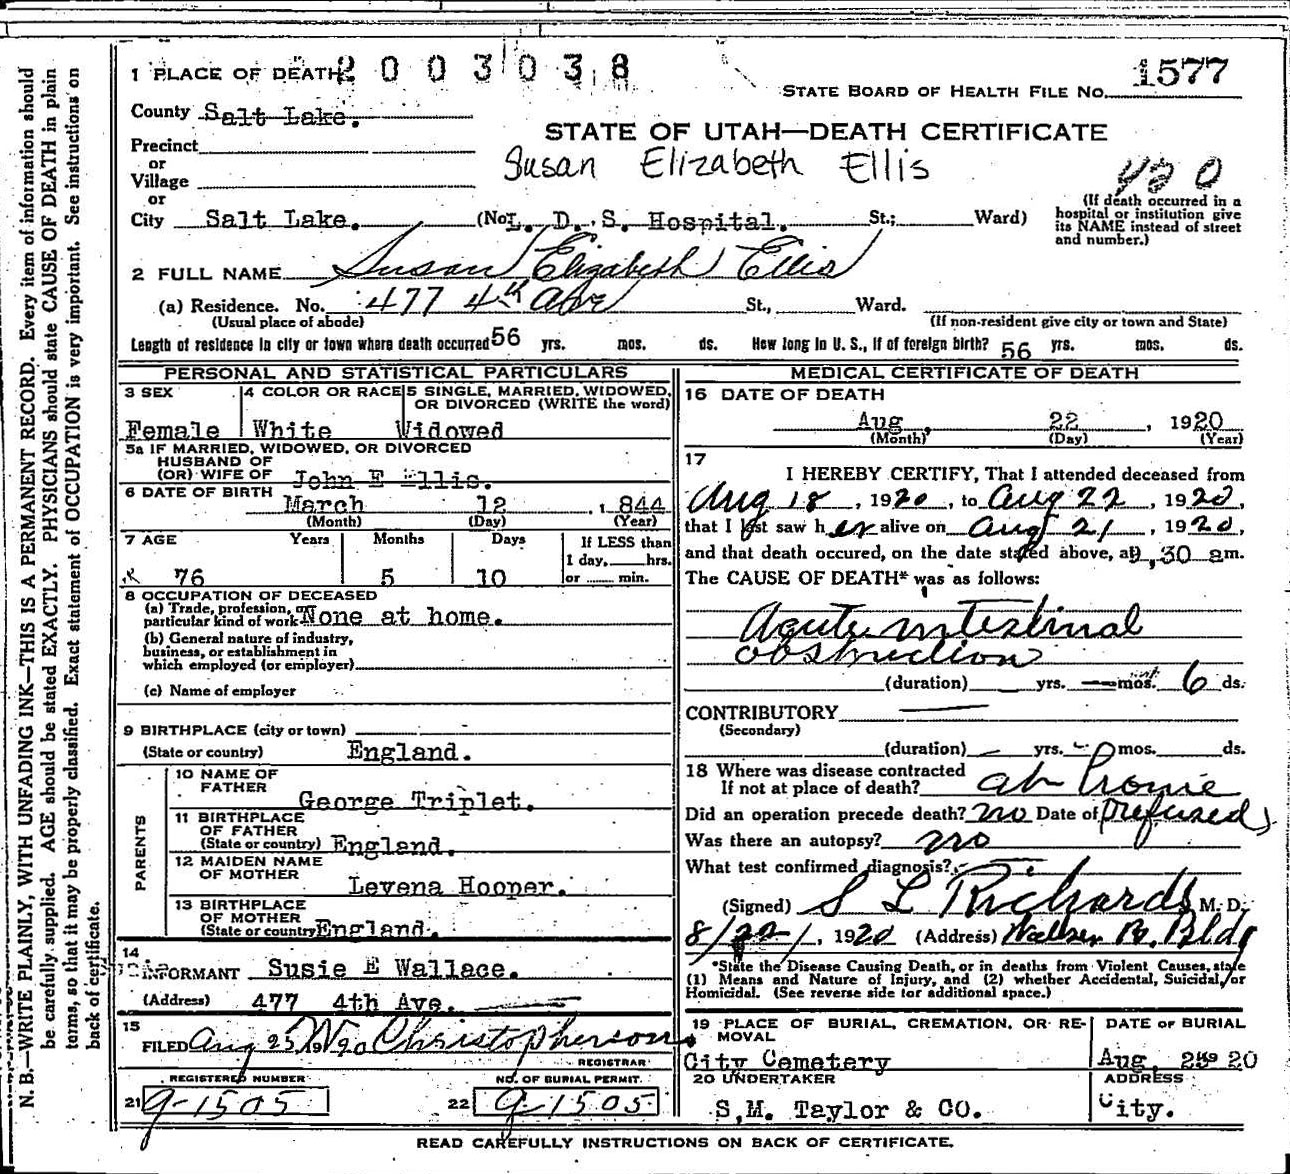 1 PLACE OF DEATH 2003038
1577
STATE BOARD OF HEALTH FILE No.
County Salt Lake.
STATE OF UTAH—DEATH CERTIFICATE
Precinct
Susan Elizabeth Ellis
or
Village
420
or
City Salt Lake. (No. L. D. S. Hospital. St.; Ward)
(If death occurred in a
hospital or institution give
its NAME instead of street
and number.)
2 FULL NAME Susan Elizabeth Ellis
(a) Residence. No. 477 4th Ave St., Ward.
(Usual place of abode) (If non-resident give city or town and State)
Length of residence in city or town where death occurred 56 yrs. mos. ds. How long in U. S., if of foreign birth? 56 yrs. mos. ds.
PERSONAL AND STATISTICAL PARTICULARS
3 SEX 4 COLOR OR RACE 5 SINGLE, MARRIED, WIDOWED,
OR DIVORCED (WRITE the word)
Female White Widowed
5a IF MARRIED, WIDOWED, OR DIVORCED
HUSBAND OF
(OR) WIFE OF John E Ellis.
6 DATE OF BIRTH March 12, 1844
(Month) (Day) (Year)
7 AGE Years Months Days If LESS than
1 day, hrs.
76 5 10 or min.
8 OCCUPATION OF DECEASED
(a) Trade, profession, or
particular kind of work None at home.
(b) General nature of industry,
business, or establishment in
which employed (or employer)
(c) Name of employer
9 BIRTHPLACE (city or town)
(State or country) England.
PARENTS
10 NAME OF
FATHER
George Triplet.
11 BIRTHPLACE
OF FATHER
(State or country) England.
12 MAIDEN NAME
OF MOTHER
Levena Hooper.
13 BIRTHPLACE
OF MOTHER
(State or country) England.
14
INFORMANT Susie E Wallace.
(Address) 477 4th Ave.
15
FILED Aug 25 1920 Christopherson
REGISTRAR
REGISTERED NUMBER NO. OF BURIAL PERMIT
21 9-1505 22 9-1505
MEDICAL CERTIFICATE OF DEATH
16 DATE OF DEATH
Aug, 22, 1920
(Month) (Day) (Year)
17
I HEREBY CERTIFY, That I attended deceased from
Aug 18, 1920, to Aug 22, 1920,
that I last saw her alive on Aug 21, 1920,
and that death occured, on the date stated above, at 9,30 am.
The CAUSE OF DEATH* was as follows:
Acute intestinal
obstruction
(duration) yrs. mos. 6 ds.
CONTRIBUTORY
(Secondary)
(duration) yrs. mos. ds.
18 Where was disease contracted
If not at place of death? at home
Did an operation precede death? no Date of (refused)
Was there an autopsy? no
What test confirmed diagnosis?
(Signed) S L Richards M. D.
8/22/, 1920 (Address) Walker B. Bldg
*State the Disease Causing Death, or in deaths from Violent Causes, state
(1) Means and Nature of Injury, and (2) whether Accidental, Suicidal, or
Homicidal. (See reverse side for additional space.)
19 PLACE OF BURIAL, CREMATION, OR RE-
MOVAL
DATE OF BURIAL
City Cemetery Aug, 25 1920
20 UNDERTAKER ADDRESS
S,M. Taylor & CO. City.
READ CAREFULLY INSTRUCTIONS ON BACK OF CERTIFICATE.
N. B.—WRITE PLAINLY, WITH UNFADING INK—THIS IS A PERMANENT RECORD. Every item of information should
be carefully supplied. AGE should be stated EXACTLY. PHYSICIANS should state CAUSE OF DEATH in plain
terms, so that it may be properly classified. Exact statement of OCCUPATION is very important. See instructions on
back of certificate.